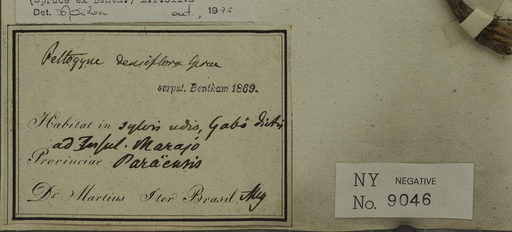 (Spruce ex Benth.) M.F.Silva
Det. Silva oct., 1975
Peltogyne densiflora Spruce
scrpst. Bentham 1869.
Habitat in sylvis udis, Gabó dictis
ad Insul. Marajó
Provinciae Paraënsis
Dr. Martius Iter Brasil. Mg
NY NEGATIVE
No. 9046